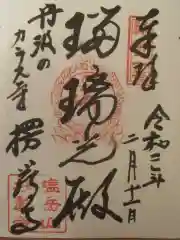 奉拝
令和二年
二月十一日
瑠璃光殿
丹波の
カラス寺
楞厳寺
塩岳山